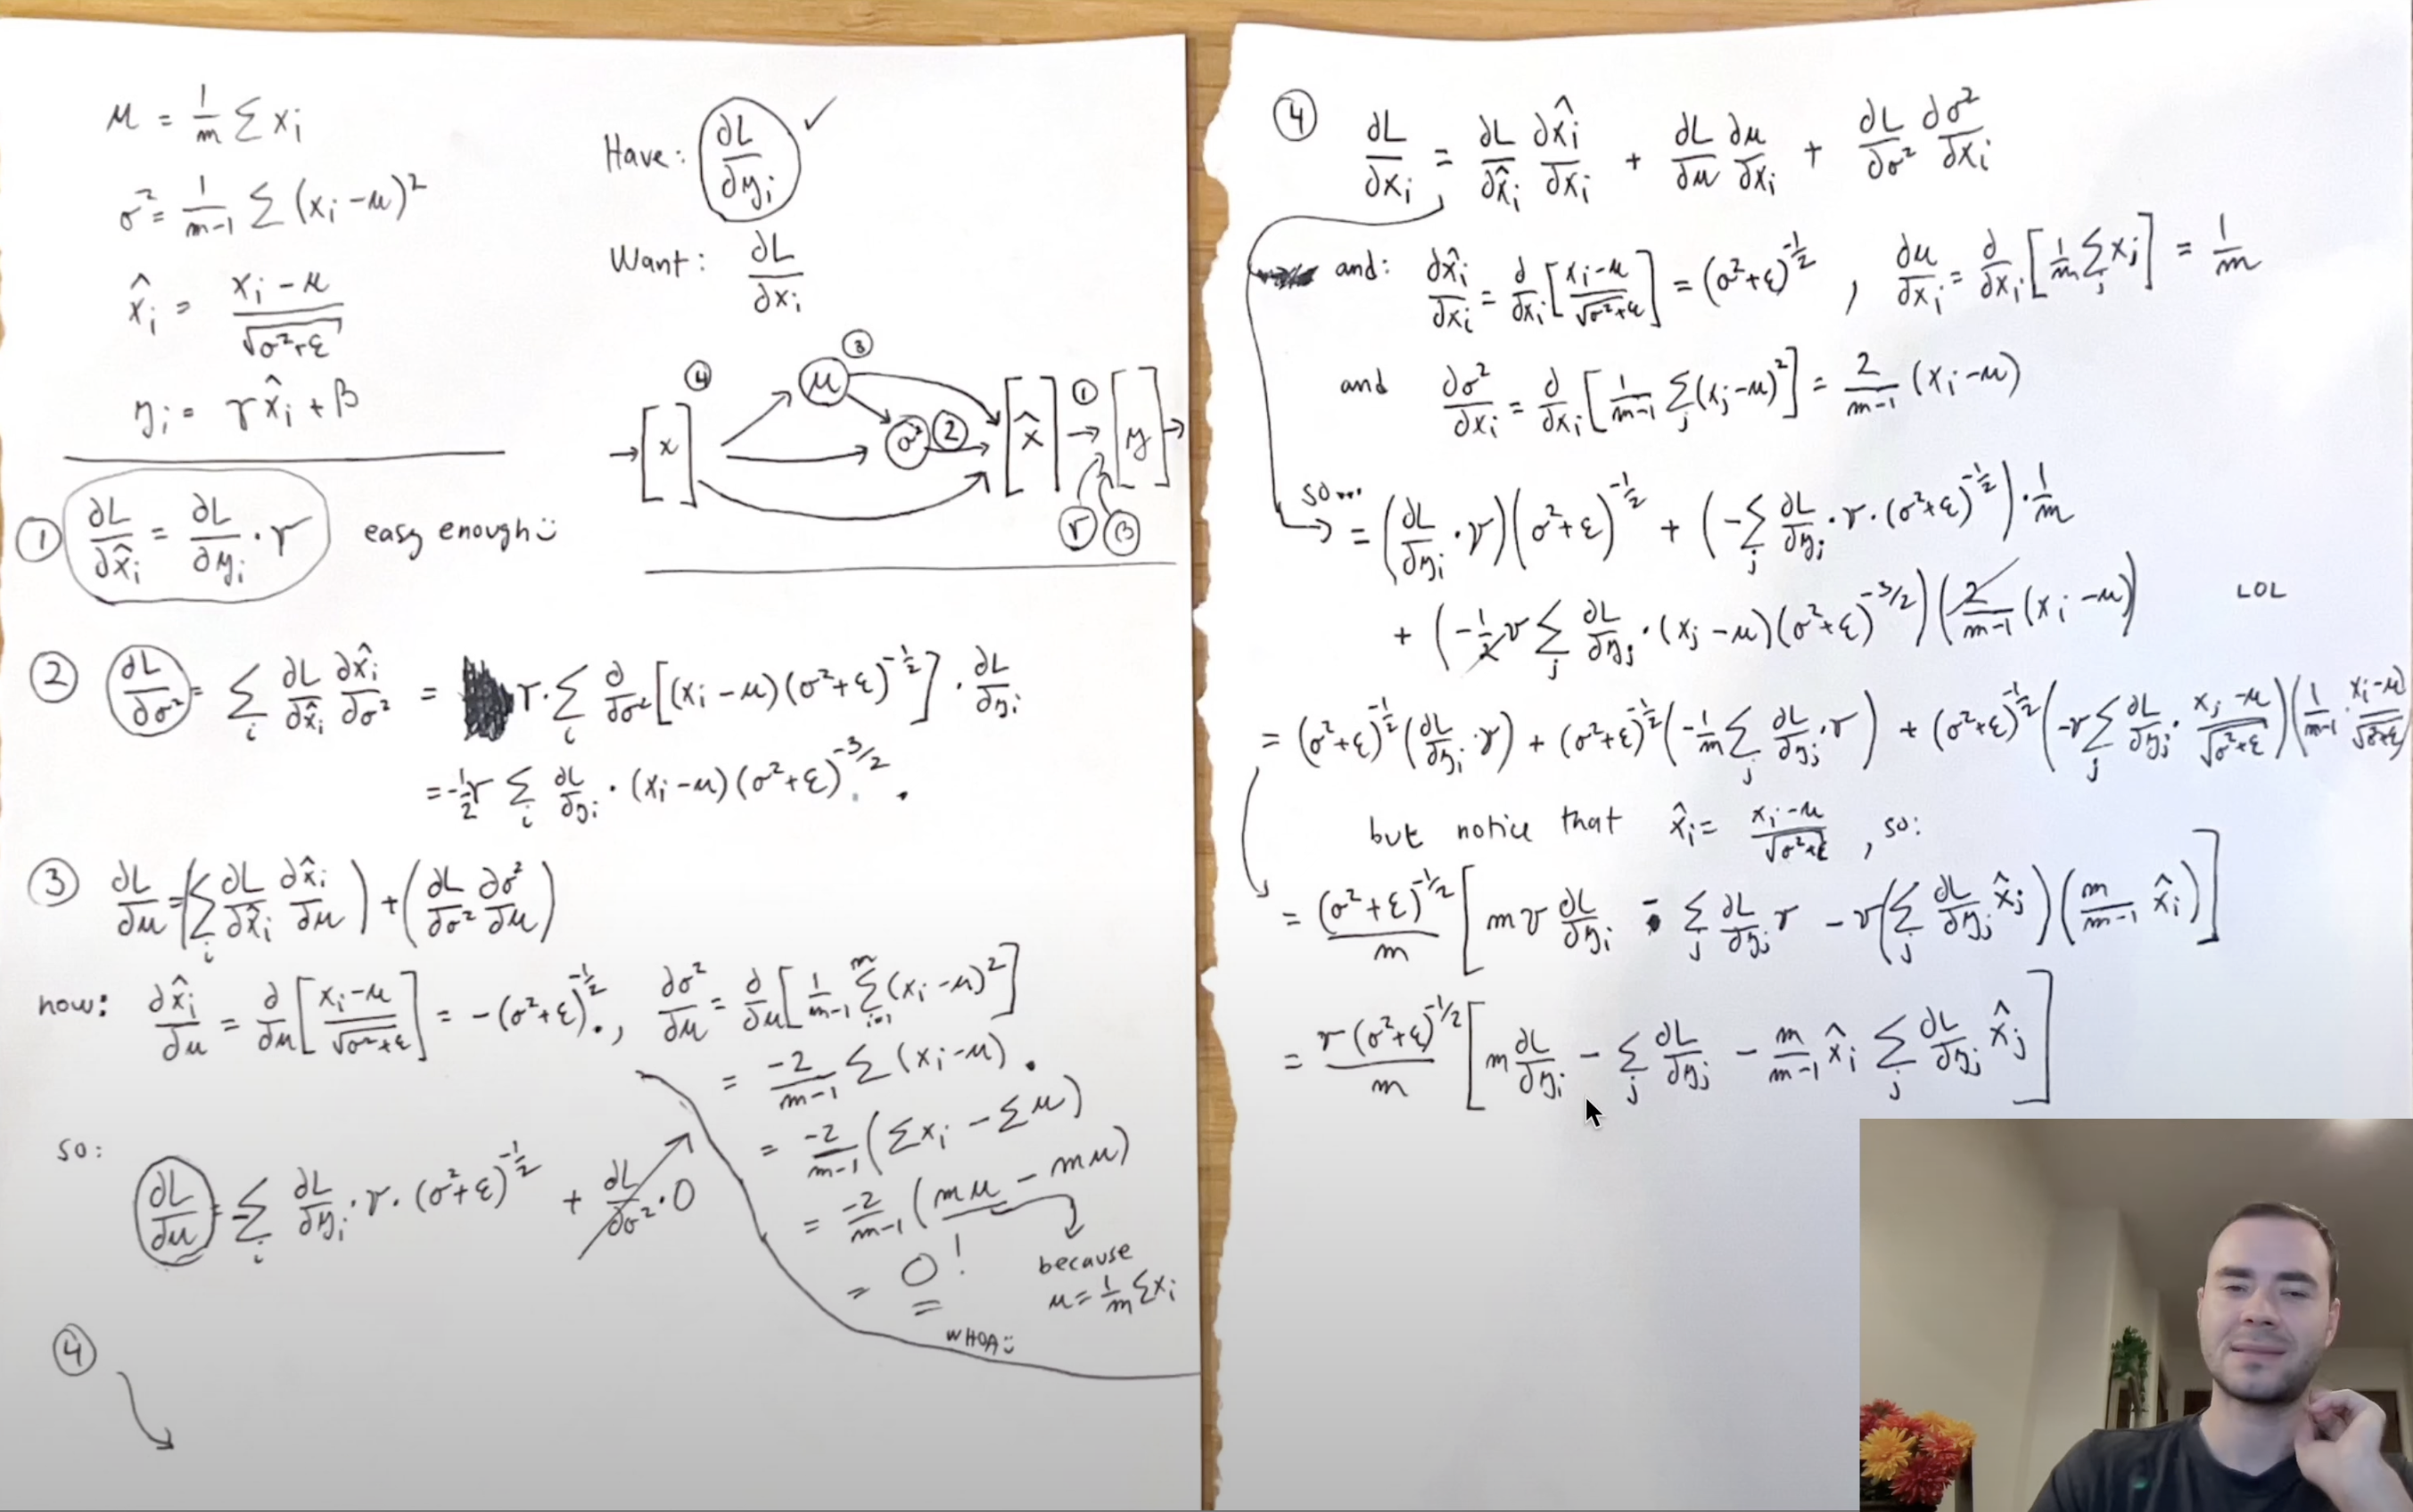 μ = 1/m Σ xᵢ
σ² = 1/(m-1) Σ (xᵢ - μ)²
x̂ᵢ = (xᵢ - μ)/√(σ²+ε)
yᵢ = γx̂ᵢ + β
Have: ∂L/∂yᵢ ✓
Want: ∂L/∂xᵢ
④ ③
→ [x] μ σ² ② [x̂] ① → [y] →
γ β
① ∂L/∂x̂ᵢ = ∂L/∂yᵢ · γ easy enough :)
② ∂L/∂σ² = Σᵢ ∂L/∂x̂ᵢ ∂x̂ᵢ/∂σ² = γ · Σᵢ ∂/∂σ² [(xᵢ - μ)(σ²+ε)^(-1/2)] · ∂L/∂yᵢ
= -1/2 γ Σᵢ ∂L/∂yᵢ · (xᵢ - μ)(σ²+ε)^(-3/2) .
③ ∂L/∂μ = (Σᵢ ∂L/∂x̂ᵢ ∂x̂ᵢ/∂μ) + (∂L/∂σ² ∂σ²/∂μ)
now: ∂x̂ᵢ/∂μ = ∂/∂μ [(xᵢ - μ)/√(σ²+ε)] = -(σ²+ε)^(-1/2) . , ∂σ²/∂μ = ∂/∂μ [1/(m-1) Σᵢ₌₁ᵐ (xᵢ - μ)²]
= -2/(m-1) Σ (xᵢ - μ) .
= -2/(m-1) (Σxᵢ - Σμ)
= -2/(m-1) (mμ - mμ)
= 0 !
WHOA :)
because
μ = 1/m Σxᵢ
so:
∂L/∂μ = -Σᵢ ∂L/∂yᵢ · γ · (σ²+ε)^(-1/2) + ∂L/∂σ² · 0
④
④ ∂L/∂xᵢ = ∂L/∂x̂ᵢ ∂x̂ᵢ/∂xᵢ + ∂L/∂μ ∂μ/∂xᵢ + ∂L/∂σ² ∂σ²/∂xᵢ
and: ∂x̂ᵢ/∂xᵢ = ∂/∂xᵢ [(xᵢ - μ)/√(σ²+ε)] = (σ²+ε)^(-1/2) , ∂μ/∂xᵢ = ∂/∂xᵢ [1/m Σⱼ xⱼ] = 1/m
and ∂σ²/∂xᵢ = ∂/∂xᵢ [1/(m-1) Σⱼ (xⱼ - μ)²] = 2/(m-1) (xᵢ - μ)
so...
= (∂L/∂yᵢ · γ)(σ²+ε)^(-1/2) + (-Σⱼ ∂L/∂yⱼ · γ · (σ²+ε)^(-1/2)) · 1/m
+ (-1/2 γ Σⱼ ∂L/∂yⱼ · (xⱼ - μ)(σ²+ε)^(-3/2)) (2/(m-1) (xᵢ - μ)) LOL
= (σ²+ε)^(-1/2) (∂L/∂yᵢ · γ) + (σ²+ε)^(-1/2) (-1/m Σⱼ ∂L/∂yⱼ · γ) + (σ²+ε)^(-1/2) (-γ Σⱼ ∂L/∂yⱼ · (xⱼ - μ)/√(σ²+ε)) (1/(m-1) · (xᵢ - μ)/√(σ²+ε)
but notice that x̂ᵢ = (xᵢ - μ)/√(σ²+ε) , so:
= (σ²+ε)^(-1/2)/m [mγ ∂L/∂yᵢ - Σⱼ ∂L/∂yⱼ γ - γ(Σⱼ ∂L/∂yⱼ x̂ⱼ)(m/(m-1) x̂ᵢ)]
= γ(σ²+ε)^(-1/2)/m [m ∂L/∂yᵢ - Σⱼ ∂L/∂yⱼ - m/(m-1) x̂ᵢ Σⱼ ∂L/∂yⱼ x̂ⱼ]